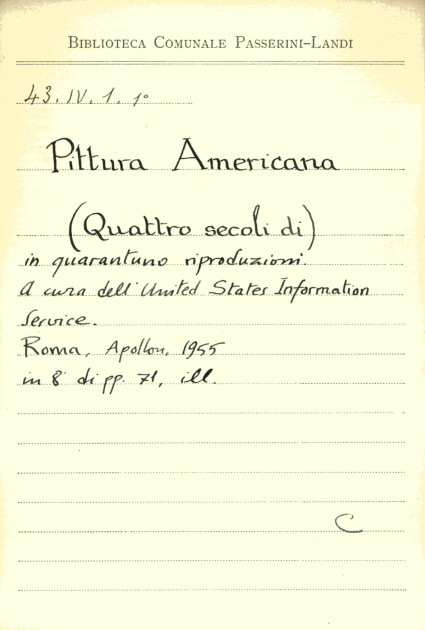 BIBLIOTECA COMUNALE PASSERINI-LANDI
43. IV. 1. 1º
Pittura Americana
(Quattro secoli di)
in quarantuno riproduzioni.
A cura dell'United States Information
Service.
Roma, Apollon, 1955
in 8º di pp. 71, ill.
C